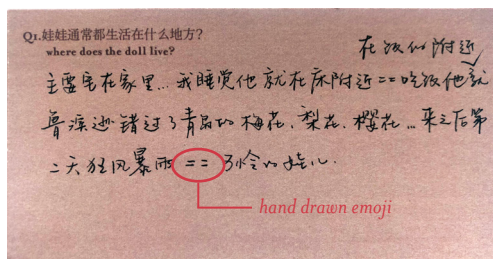 Q1.娃娃通常都生活在什么地方?
where does the doll live?
在饭的附近
主要宅在家里...我睡觉他就在床附近==吃饭他就
错过了青岛的梅花、梨花、樱花...来之后第
二天狂风暴雨==可怜的娃儿.
hand drawn emoji